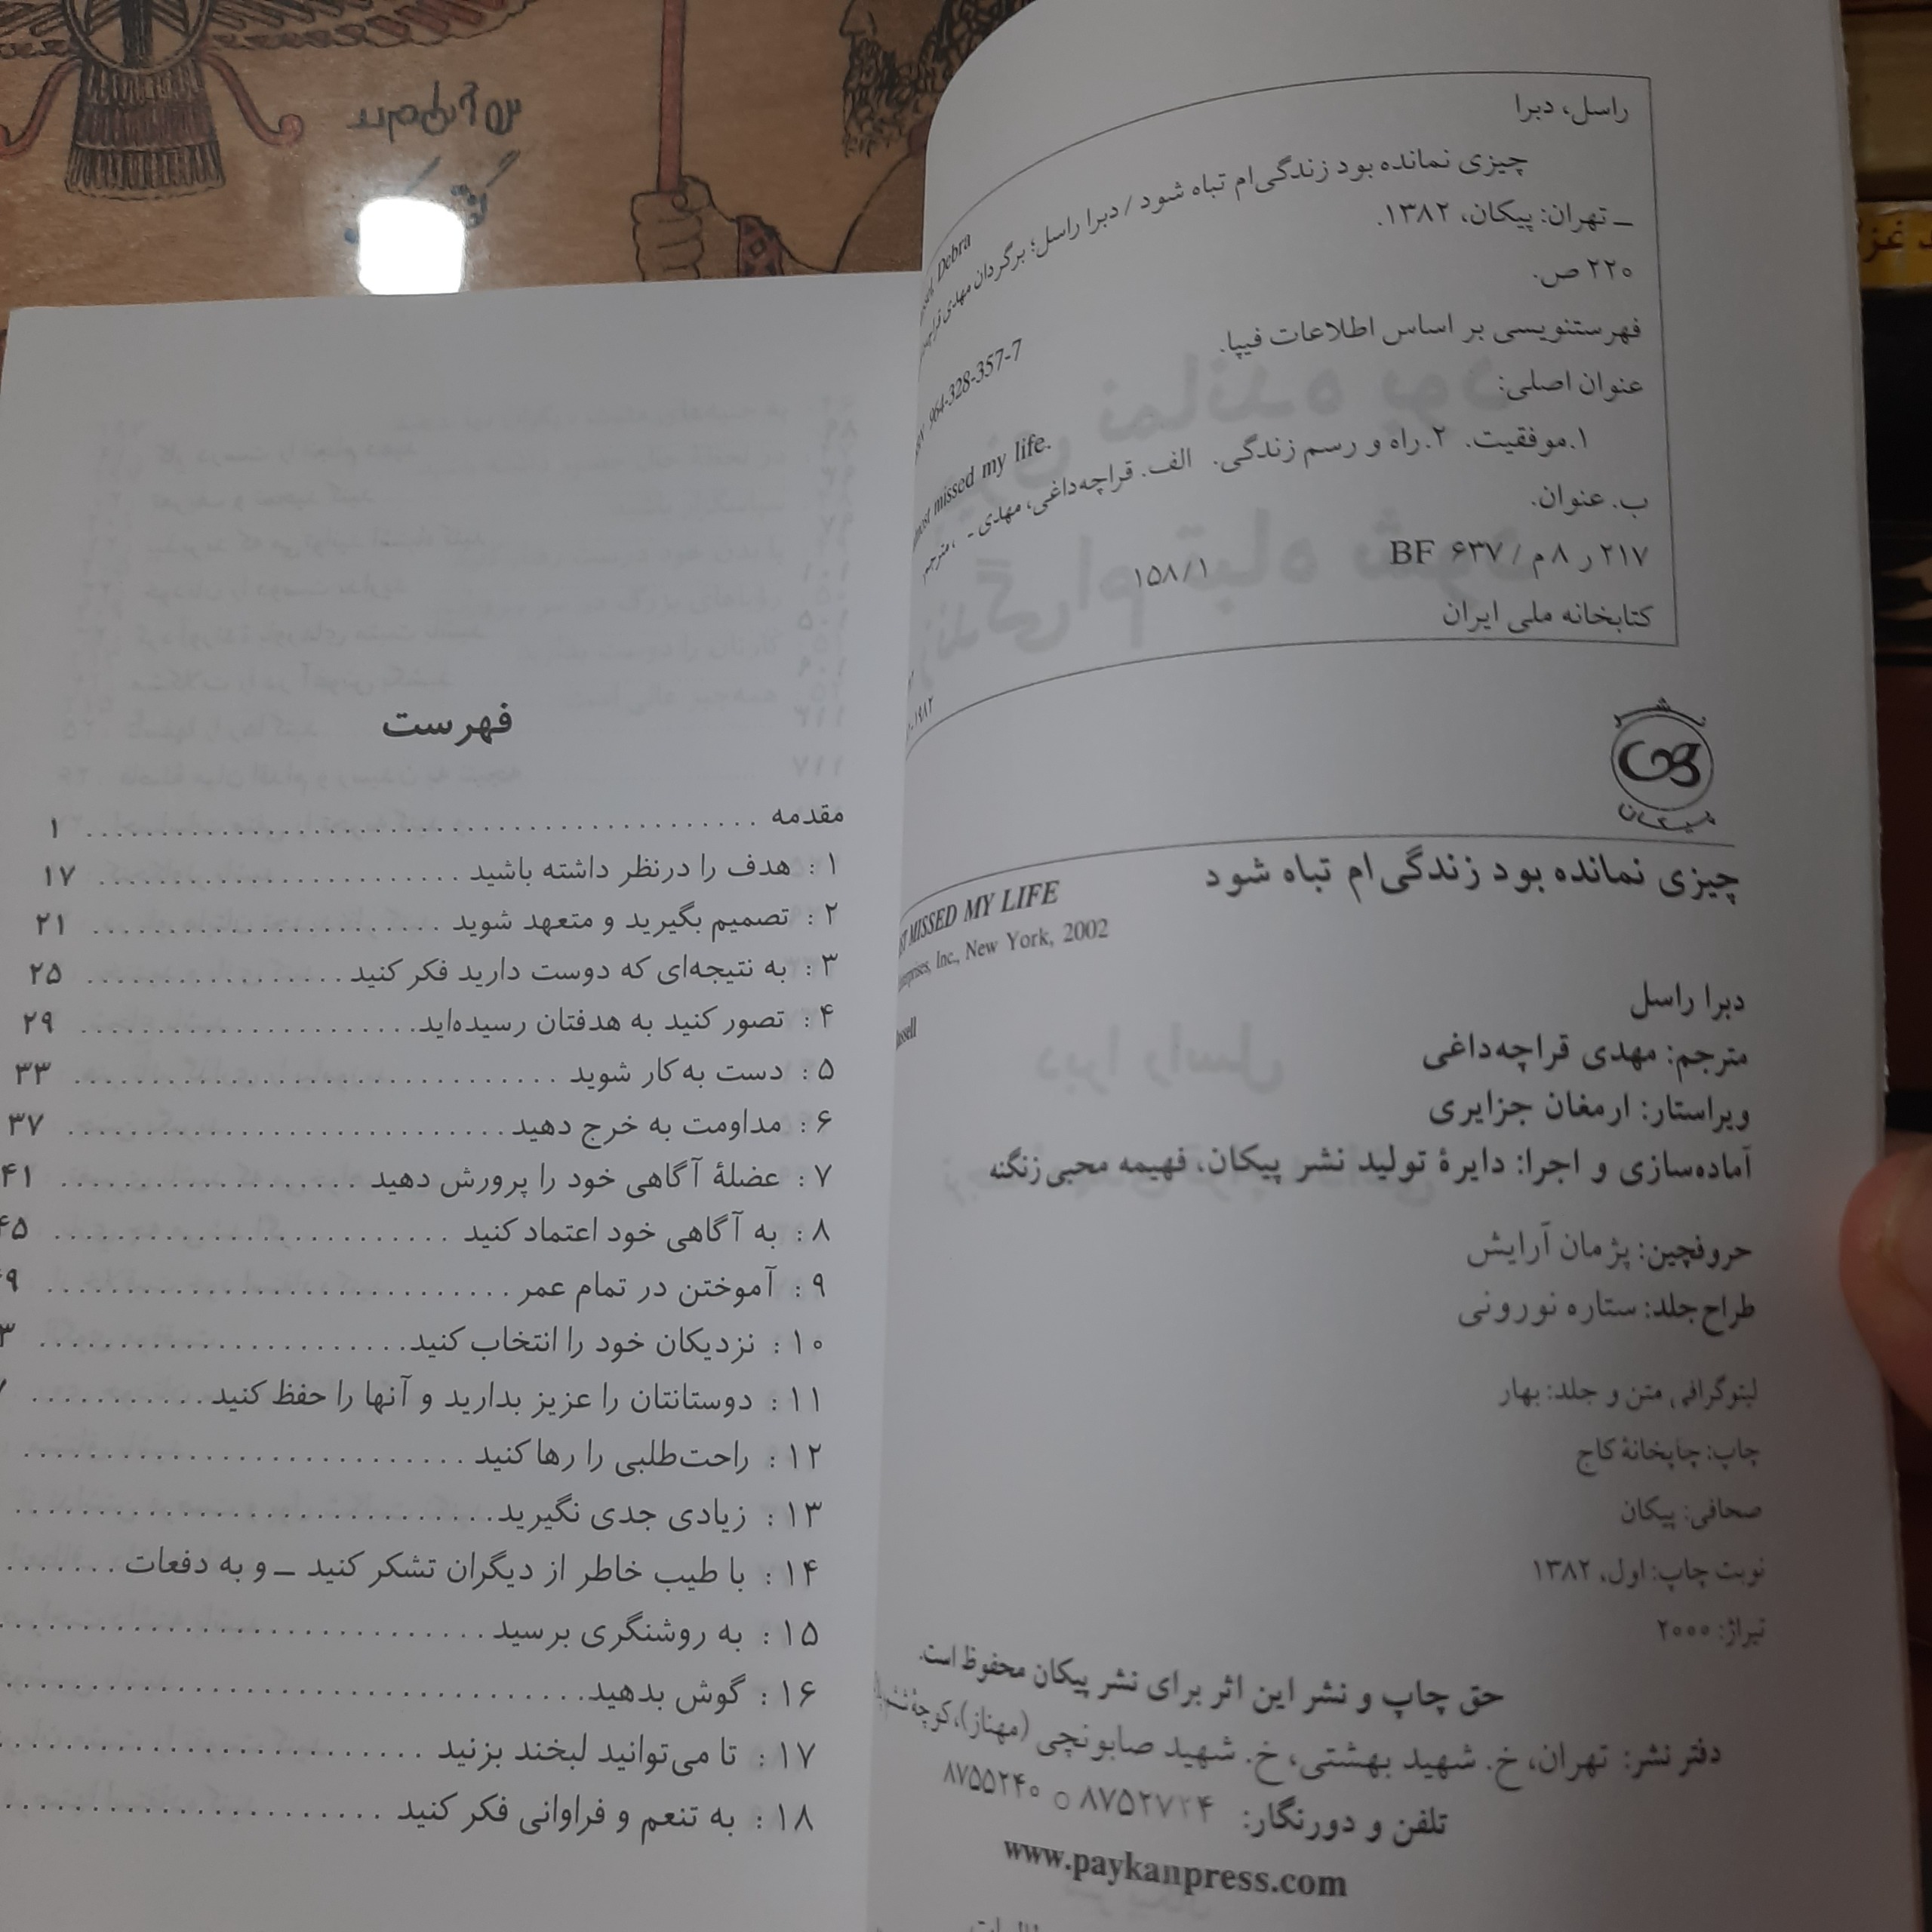 راسل، دبرا
Debra
چیزی نمانده بود زندگی‌ام تباه شود / دبرا راسل؛ برگردان مهدی
ـ تهران: پیکان، ۱۳۸۲.
۲۲۰ ص.
964-328-357-7
فهرستنویسی بر اساس اطلاعات فیپا.
عنوان اصلی:
missed my life.
۱.موفقیت. ۲.راه و رسم زندگی. الف. قراچه‌داغی، مهدی - ، مترجم.
ب. عنوان.
۲۱۷ ر ۸ م / ۶۳۷ BF
۱۵۸/۱
کتابخانه ملی ایران
۱۹۸۲
نشر
پیکان
چیزی نمانده بود زندگی‌ام تباه شود
MISSED MY LIFE
Inc., New York, 2002
دبرا راسل
مترجم: مهدی قراچه‌داغی
ویراستار: ارمغان جزایری
آماده‌سازی و اجرا: دایرهٔ تولید نشر پیکان، فهیمه محبی‌زنگنه
حروفچین: پژمان آرایش
طراح‌جلد: ستاره نورونی
لیتوگرافی متن و جلد: بهار
چاپ: چاپخانهٔ کاج
صحافی: پیکان
نوبت چاپ: اول، ۱۳۸۲
تیراژ: ۲۰۰۰
حق چاپ و نشر این اثر برای نشر پیکان محفوظ است.
دفتر نشر: تهران، خ. شهید بهشتی، خ. شهید صابونچی (مهناز)، کوچهٔ
تلفن و دورنگار: ۸۷۵۲۷۲۴ ○ ۸۷۵۵۲۴۰
www.paykanpress.com
فهرست
مقدمه ........ ۱
۱ : هدف را درنظر داشته باشید ........ ۱۷
۲ : تصمیم بگیرید و متعهد شوید ........ ۲۱
۳ : به نتیجه‌ای که دوست دارید فکر کنید ........ ۲۵
۴ : تصور کنید به هدفتان رسیده‌اید ........ ۲۹
۵ : دست به‌کار شوید ........ ۳۳
۶ : مداومت به خرج دهید ........ ۳۷
۷ : عضلهٔ آگاهی خود را پرورش دهید ........ ۴۱
۸ : به آگاهی خود اعتماد کنید ........ ۴۵
۹ : آموختن در تمام عمر ........ ۹
۱۰ : نزدیکان خود را انتخاب کنید ........ ۳
۱۱ : دوستانتان را عزیز بدارید و آنها را حفظ کنید ........
۱۲ : راحت‌طلبی را رها کنید ........
۱۳ : زیادی جدی نگیرید ........
۱۴ : با طیب خاطر از دیگران تشکر کنید ـ و به دفعات ........
۱۵ : به روشنگری برسید ........
۱۶ : گوش بدهید ........
۱۷ : تا می‌توانید لبخند بزنید ........
۱۸ : به تنعم و فراوانی فکر کنید ........